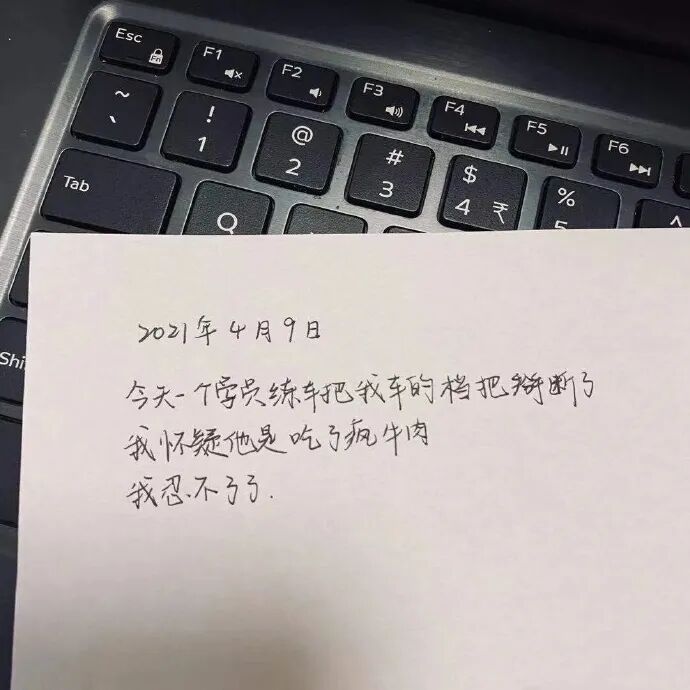 Esc
Fn
F1
F2
F3
F4
F5
F6
~
`
!
1
@
2
#
3
$
4 ₹
%
5
^
Tab
Q
Shi
2021年4月9日
今天一个学员练车把我车的档把掰断了
我怀疑他是吃了疯牛肉
我忍不了了.